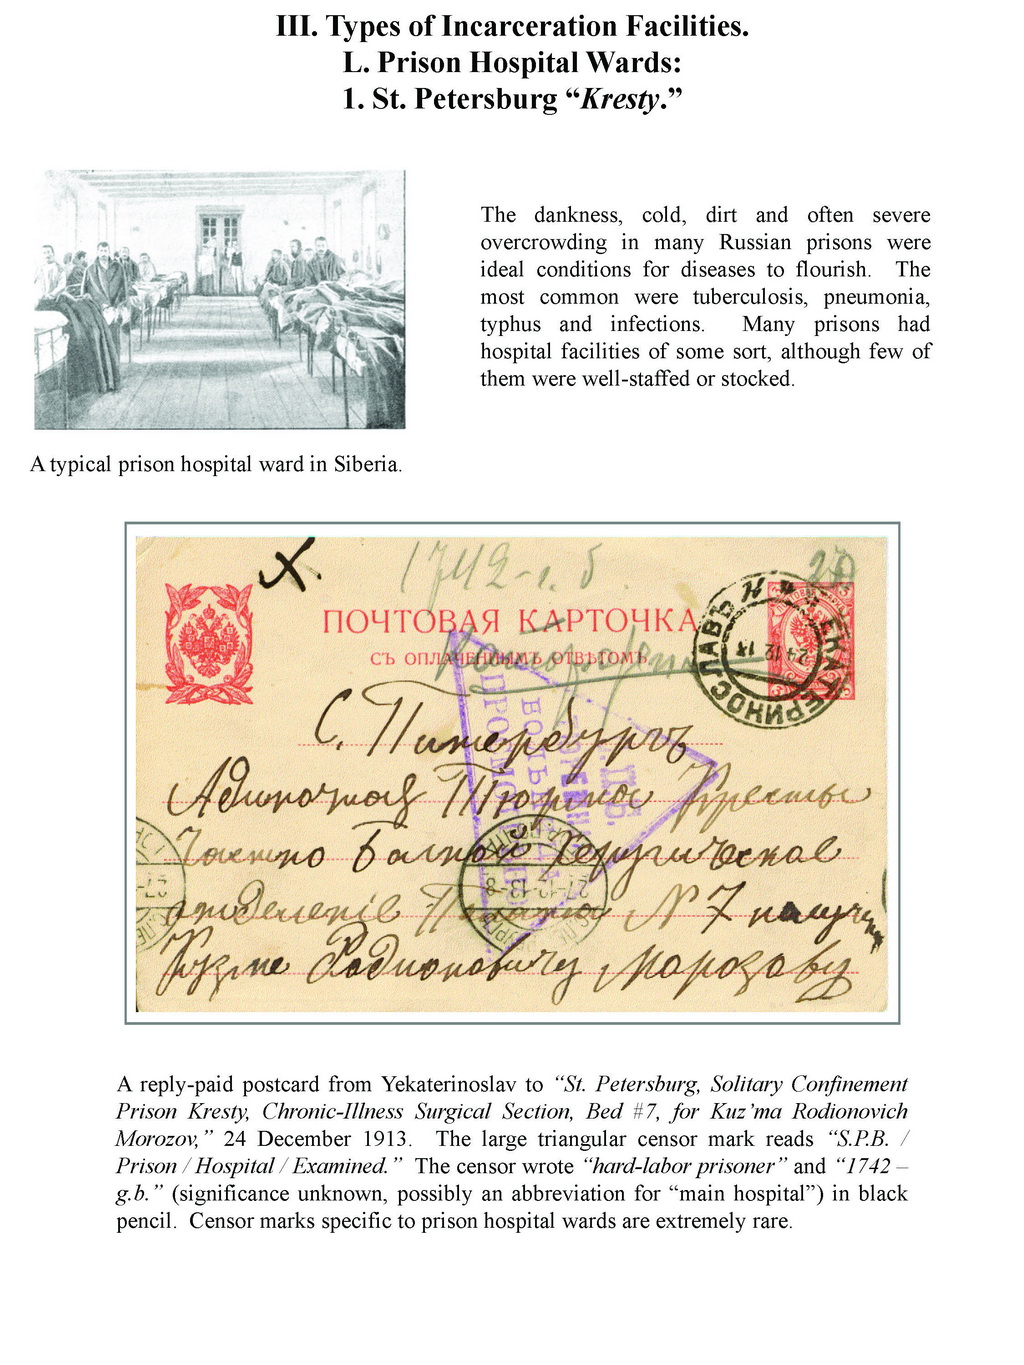 III. Types of Incarceration Facilities.
L. Prison Hospital Wards:
1. St. Petersburg “Kresty.”
The dankness, cold, dirt and often severe
overcrowding in many Russian prisons were
ideal conditions for diseases to flourish. The
most common were tuberculosis, pneumonia,
typhus and infections. Many prisons had
hospital facilities of some sort, although few of
them were well-staffed or stocked.
A typical prison hospital ward in Siberia.
1742-г. б.
ПОЧТОВАЯ КАРТОЧКА
СЪ ОПЛАЧЕННЫМЪ ОТВѢТОМЪ
ЕКАТЕРИНОСЛАВЪ
24 12 13
С. Питербургъ
Адиночной Тюрмы Кресты
27-12-13-8
отделение Палата № 7
Кузме Родионовичу Морозову
A reply-paid postcard from Yekaterinoslav to “St. Petersburg, Solitary Confinement
Prison Kresty, Chronic-Illness Surgical Section, Bed #7, for Kuz’ma Rodionovich
Morozov,” 24 December 1913. The large triangular censor mark reads “S.P.B. /
Prison / Hospital / Examined.” The censor wrote “hard-labor prisoner” and “1742 –
g.b.” (significance unknown, possibly an abbreviation for “main hospital”) in black
pencil. Censor marks specific to prison hospital wards are extremely rare.